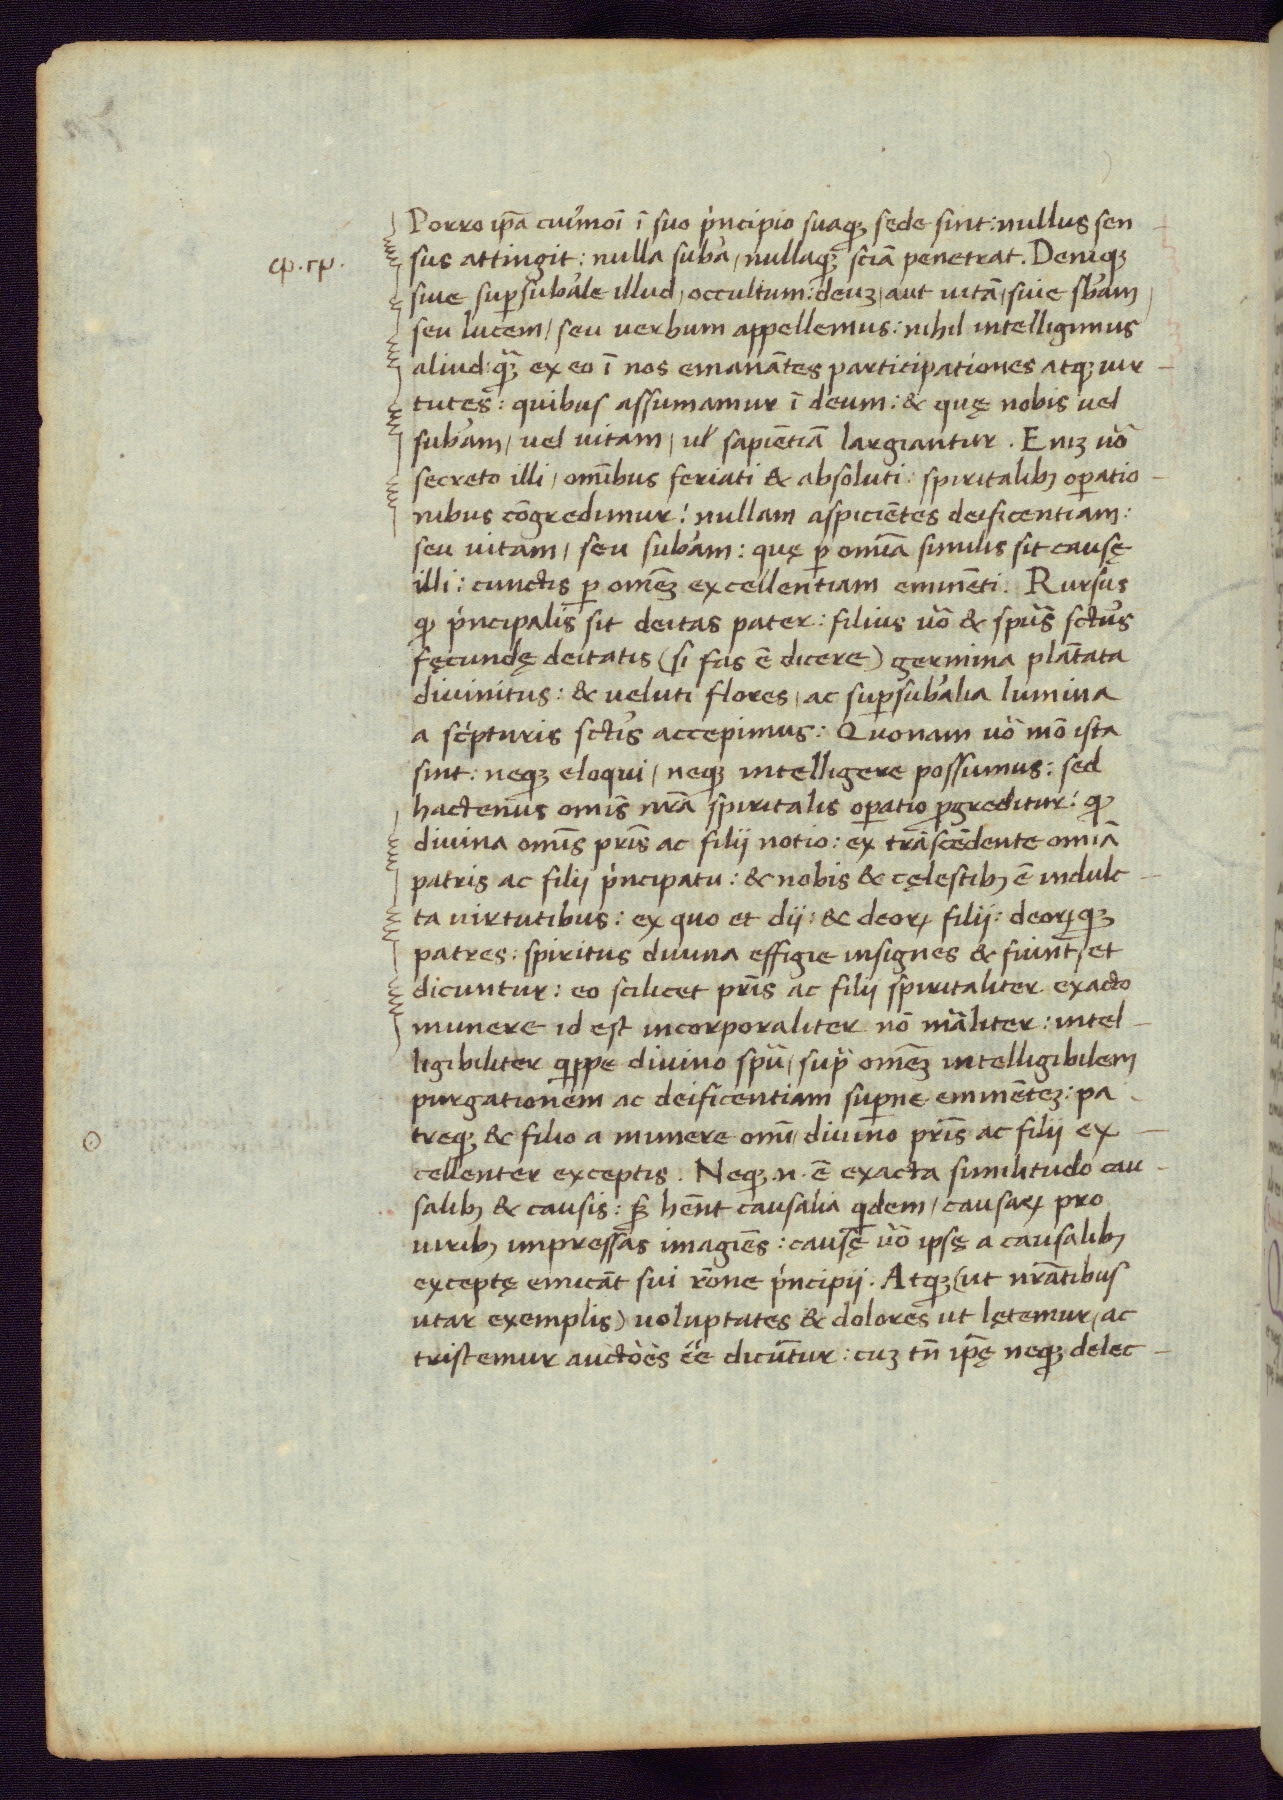 Porro ip̄a cuiꝰmoi ī suo pͥncipio suaqꝫ sede sint: nullus sen
sus attingit: nulla subā, nullaqꝫ sciā penetrat. Deniqꝫ
siue suꝑsubāle illud, occultum: deuꝫ, aut uitā, siue sbām
seu lucem, seu uerbum appellemus: nihil intelligimus
aliud: qͣꝫ ex eo ī nos emanātes participationes atqꝫ uir-
tutes: quibus assumamur ī deum: & quę nobis uel
subām, uel uitam, ul̓ sapiētiā largiantur. Eniꝫ uō
secreto illi, omībus feriati & absoluti: spiritalibꝫ oꝑatio-
nibus cōgredimur: nullam aspiciētes deificentiam:
seu uitam, seu subām: quę ꝑ omīa similis sit causę
illi: cunctis ꝑ omēꝫ excellentiam eminēti. Rursus
ꝙ pͥncipalis sit deitas pater: filius uō & spūs sctūs
fęcundę deitatis (si fas ē dicere) germina plātata
diuinitus: & ueluti flores, ac suꝑsubālia lumina
a scͥpturis sctīs accepimus: Quonam uō mō ista
sint: neqꝫ eloqui, neqꝫ intelligere possumus: sed
hactenus omīs nrā spiritalis oꝑatio ꝓgreditur: ꝙ
diuina omīs prīs ac filij notio: ex trāscēdente omīa
patris ac filij pͥncipatu: & nobis & cęlestibꝫ ē indulc-
ta uirtutibus: ex quo et dij: & deoꝝ filij: deoꝝqꝫ
patres: spiritus diuina effigie insignes & fiunt, et
dicuntur: eo scilicet prīs ac filij spiritaliter exacto
munere id est incorporaliter nō māliter: intel-
ligibiliter qͥppe diuino spū, supͣ omēꝫ intelligibilem
purgationem ac deificentiam suꝑne eminēteꝫ: pa-
treqꝫ & filio a munere omī, diuino prīs ac filij ex-
cellenter exceptis. Neqꝫ .n. ē exacta similitudo cau-
salibꝫ & causis: sꝫ hēnt causalia qͥdem, causaꝝ pro
uiribꝫ impressas imagiēs: causę uō ipsę a causalibꝫ
exceptę emicāt sui rōne pͥncipij. Atqꝫ (ut nrātibus
utar exemplis) uoluptates & dolores ut lętemur, ac
tristemur auctoēs ēē dicūtur: cuꝫ tn̄ ip̄ę neqꝫ delec-